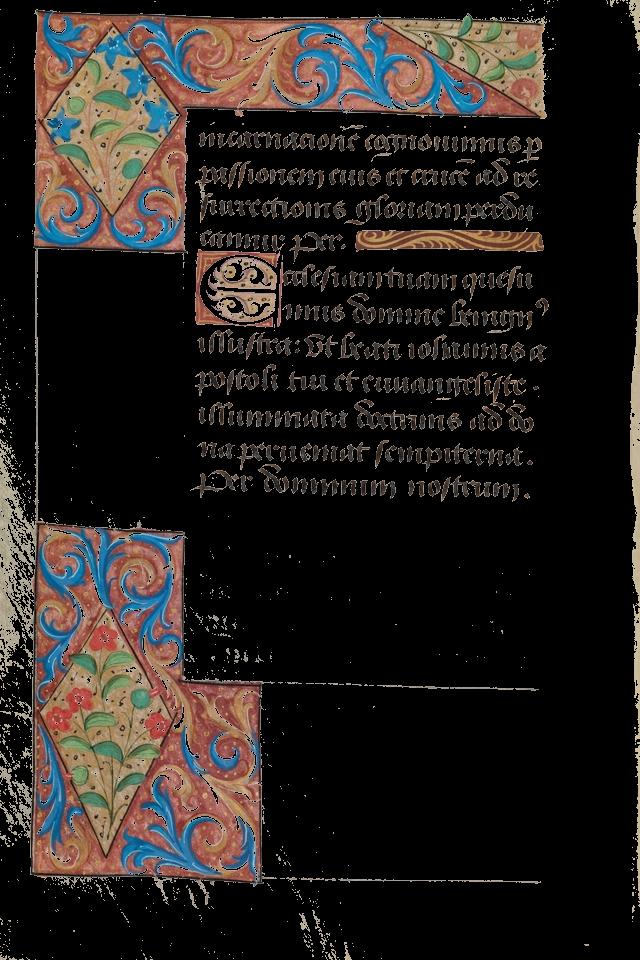 incarnacionē cognouimus p̲
passionem eius et crucē ad re
surrectionis gloriam perdu
camur per.
Ecclesiam tuam quesu
mus domine benign⁹
illustra: Vt beati iohannis a
postoli tui et euuangeliste.
illuminata doctrinis ad do
na perueniat sempiterna.
Per dominum nostrum.